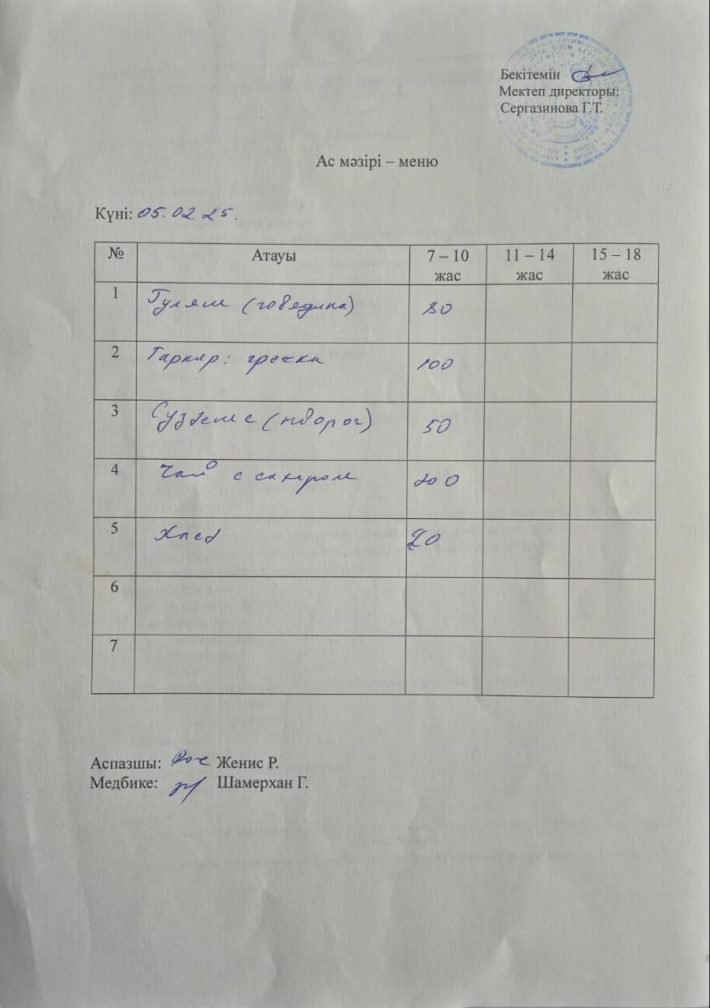 Бекітемін
Мектеп директоры:
Сергазинова Г.Т.
Ас мәзірі – меню
Күні: 05.02 25.
№ Атауы 7 – 10 жас 11 – 14 жас 15 – 18 жас
1 Гуляш (говядина) 80
2 Гарнир: гречка 100
3 Сүзбеше (творог) 50
4 Чай с сахаром 200
5 Хлеб 20
6
7
Аспазшы: Женис Р.
Медбике: Шамерхан Г.